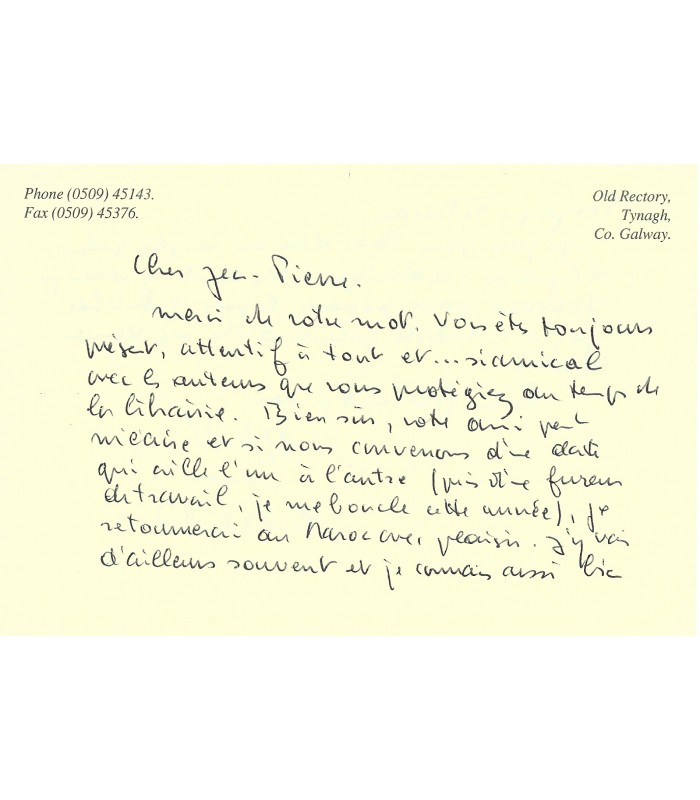 Phone (0509) 45143.
Fax (0509) 45376.
Old Rectory,
Tynagh,
Co. Galway.
Cher Jean-Pierre.
merci de votre mot. Vous êtes toujours
présent, attentif à tout et... si amical
avec les auteurs que vous protégiez au temps de
la librairie. Bien sûr, votre ami peut
m'écrire et si nous convenons d'une date
qui aille l'un à l'autre (pris d'une fureur
de travail, je me boucle cette année), je
retournerai au Maroc avec plaisir. J'y vais
d'ailleurs souvent et je connais aussi bien